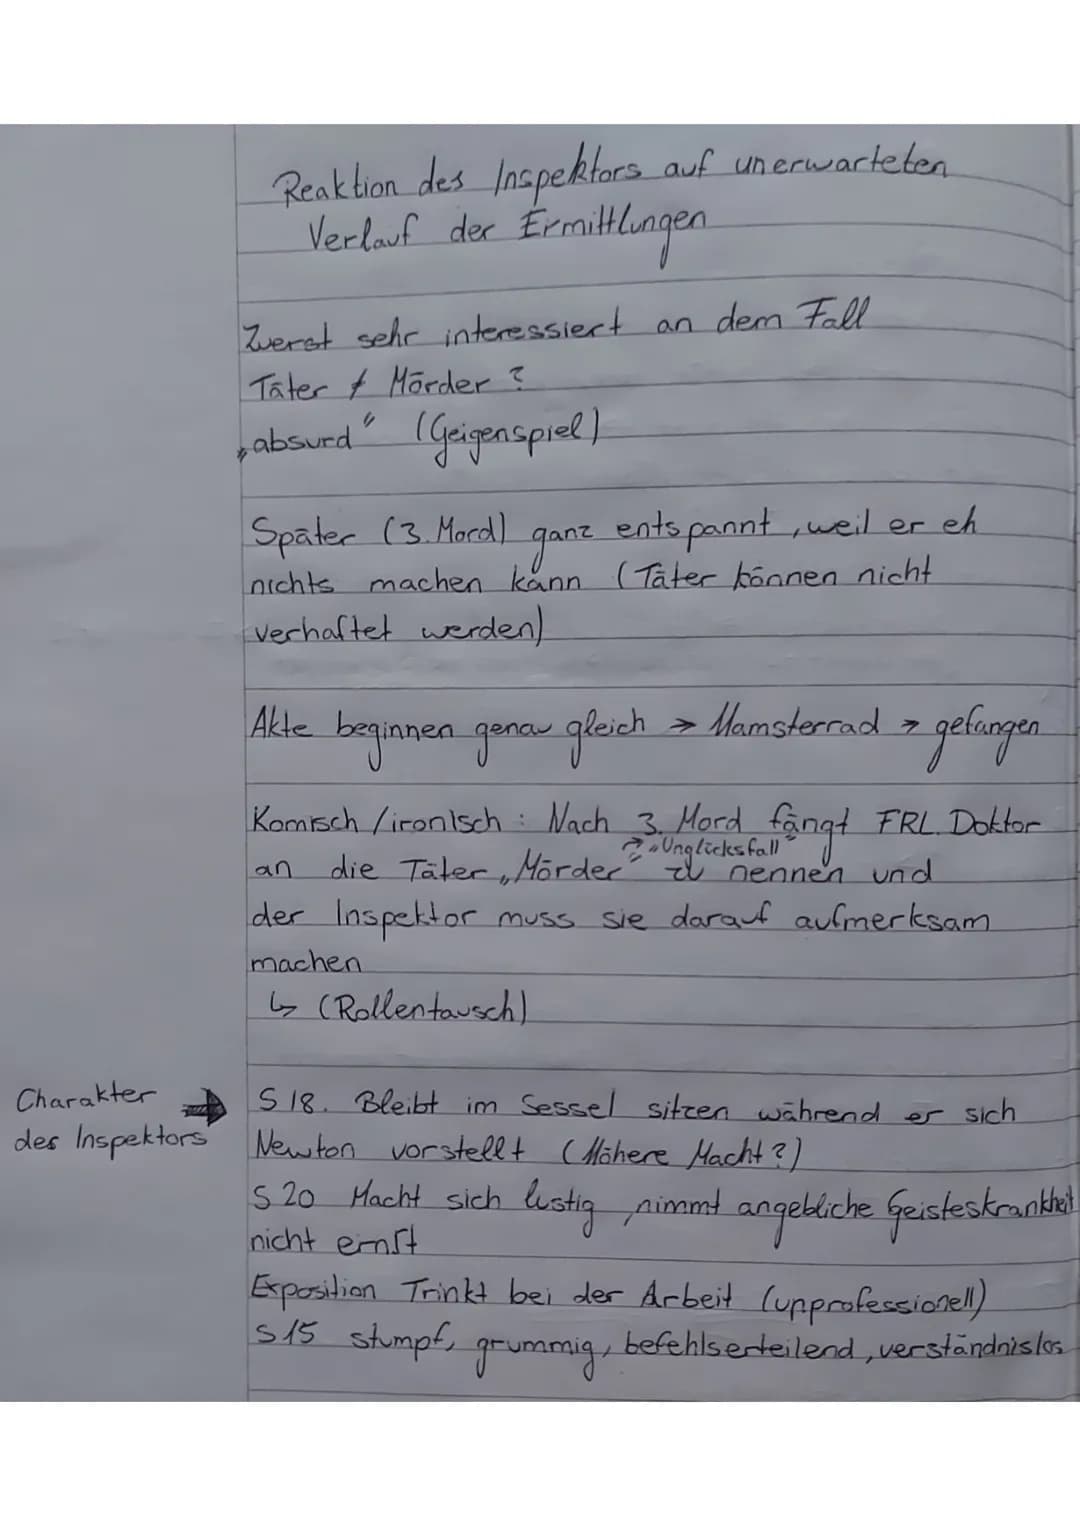 Reaktion des Inspektors auf unerwarteten
Verlauf der Ermittlungen
Zuerst sehr interessiert an dem Fall
Täter ≠ Mörder ?
„absurd“ (Geigenspiel)
Später (3. Mord) ganz entspannt, weil er eh
nichts machen kann (Täter können nicht
verhaftet werden)
Akte beginnen genau gleich → Hamsterrad → gefangen
Komisch/ironisch: Nach 3. Mord fängt FRL. Doktor
→ „Unglücksfall“
an die Täter „Mörder“ zu nennen und
der Inspektor muss sie darauf aufmerksam
machen
↳ (Rollentausch)
Charakter
des Inspektors →
S 18. Bleibt im Sessel sitzen während er sich
Newton vorstellt (Höhere Macht?)
S 20 Macht sich lustig, nimmt angebliche Geisteskrankheit
nicht ernst
Exposition Trinkt bei der Arbeit (unprofessionell)
S 15 stumpf, grummig, befehlserteilend, verständnislos